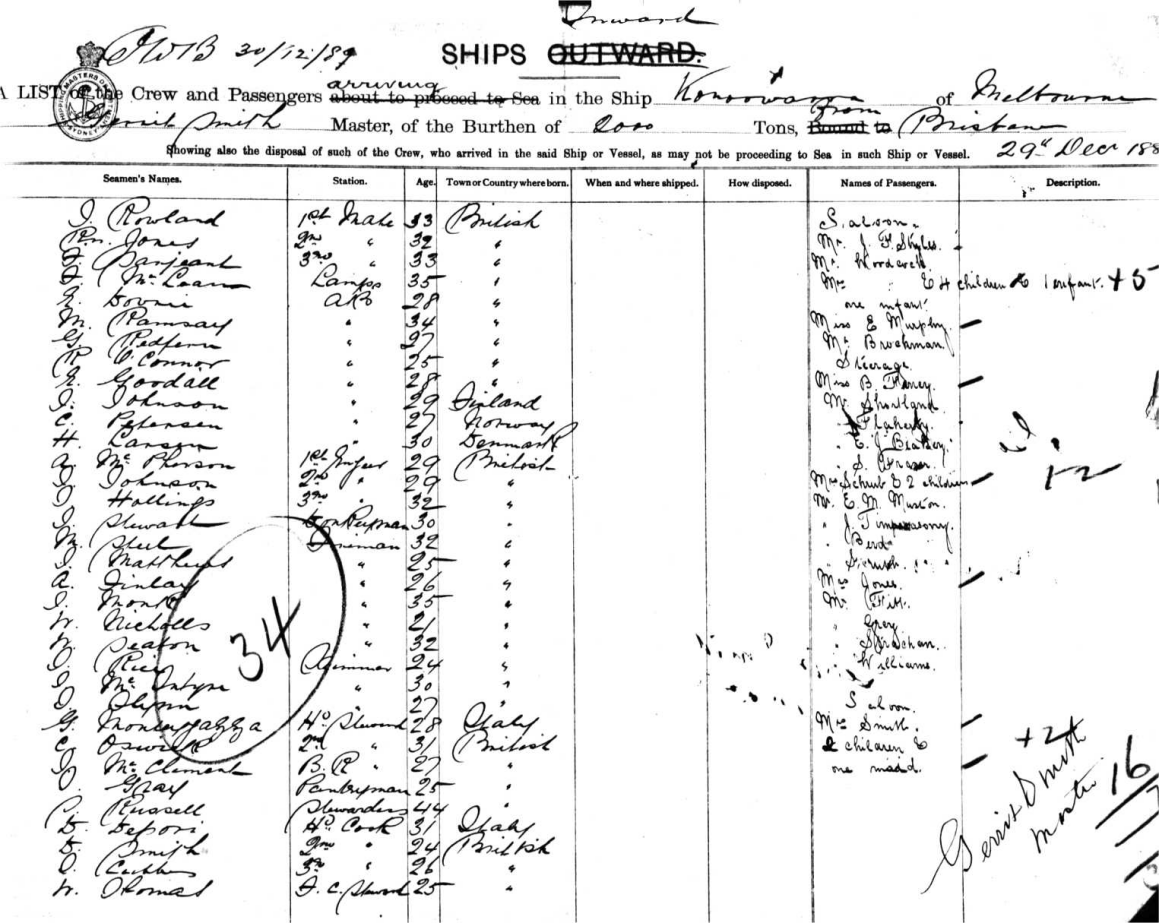 Inward
30/12/89
SHIPS OUTWARD.
A LIST of the Crew and Passengers arriving about to proceed to Sea in the Ship Konoowarra of Melbourne
Gerrit Smith Master, of the Burthen of 2000 Tons, from Bound to Brisbane
Showing also the disposal of such of the Crew, who arrived in the said Ship or Vessel, as may not be proceeding to Sea in such Ship or Vessel. 29th Decr 188
Seamen's Names. Station. Age. Town or Country where born. When and where shipped. How disposed. Names of Passengers. Description.
J. Rowland 1st Mate 33 British Saloon.
Jones 2nd " 32 " Mr. J. F. Skyles.
Sarjeant 3rd " 33 " Mr. Woodcock
McLean Lamps 35 " Mrs " & 4 children & 1 infant. +5
Downie AB 28 " one infant.
M. Ramsay " 34 " Miss E Murphy.
G. Redfern " 27 " Mr Brockman.
R O'Connor " 25 " Steerage.
Goodall " 28 " Miss B.
J. Johnson " 29 Finland Mr Shortland
C. Petersen " 27 Norway " Flaherty.
H. Larsen " 30 Denmark " E. J.
A. McPherson 1st 29 British " S. Fraser.
J. Johnson 2nd " 29 " Mrs Schrub & 2 children 12
J. Hollings 3rd " 32 " Mr. E. M.
J. Stewart Donkeyman 30 " " J.
M. Steel Fireman 32 " " Bird
J. Matthews " 25 "
A. Finlay " 26 " Mrs Jones.
J. Monro " 35 " Mr.
W. Nicholls " 21 " " Grey
W. Seaton " 32 " " Strachan.
J. Rice Trimmer 24 " " Williams.
J. McIntyre " 30 "
Glynn " 27 Saloon.
G. Hd. Steward 28 Italy Mrs Smith.
C. Oswald 2nd " 31 British 2 children & +2
J. McClement B. R " 27 " one maid.
Gray Pantryman 25 "
Russell Stewardess 44 "
Hd. Cook 31 Italy
Smith 2nd " 24 British
3rd " 26 "
W. Thomas F. C. Steward 25 "
34
16
Gerrit Smith
Master